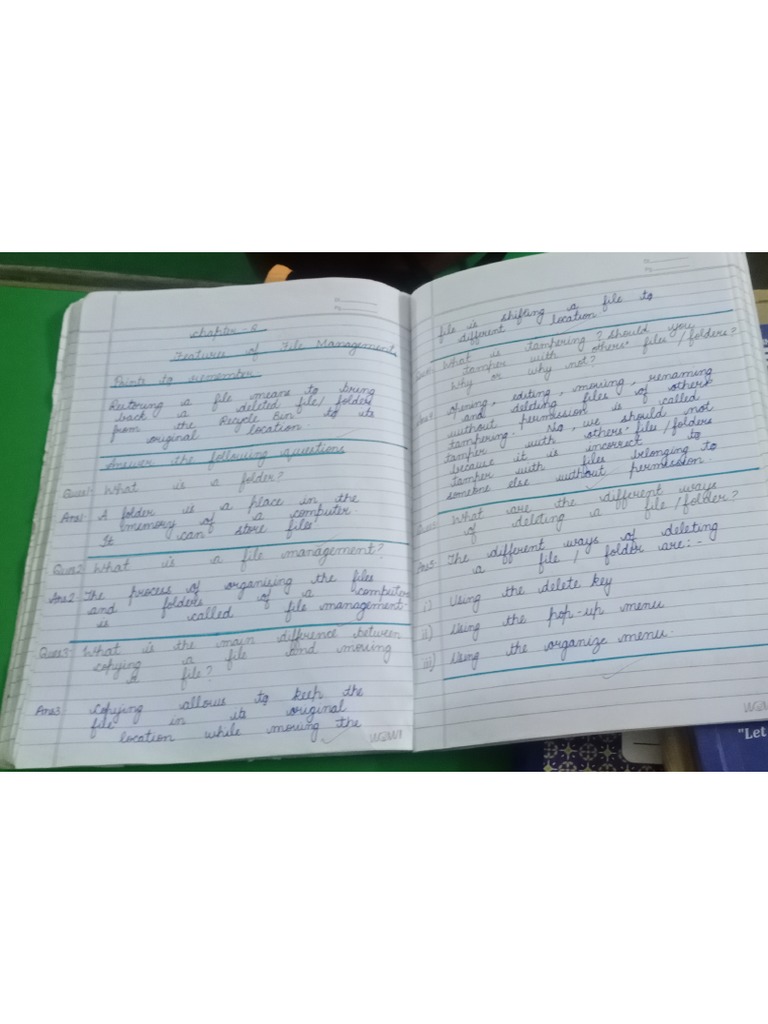 Chapter - 2
Features of File Management
Points to remember
Restoring a file means to bring
back a deleted file/folder
from the Recycle Bin to its
original location.
Answer the following questions
Ques1- What is a folder?
Ans1- A folder is a place in the
memory of a computer.
It can store files.
Ques2- What is a file management?
Ans2- The process of organising the files
and folders of a computer
is called file management.
Ques3- What is the main difference between
copying a file and moving
a file?
Ans3- Copying allows to keep the
file in its original
location while moving the
file is shifting a file to
different location
What is tampering? Should you
tamper with others' files/folders?
Why or why not?
Opening, editing, moving, renaming
and deleting files of others
without permission is called
tampering. No, we should not
tamper with others' files/folders
because it is incorrect to
tamper with files belonging to
someone else without permission.
What are the different ways
of deleting a file/folder?
Ans5- The different ways of deleting
a file / folder are:-
i) Using the delete key
ii) Using the pop-up menu
iii) Using the organize menu.
"Let